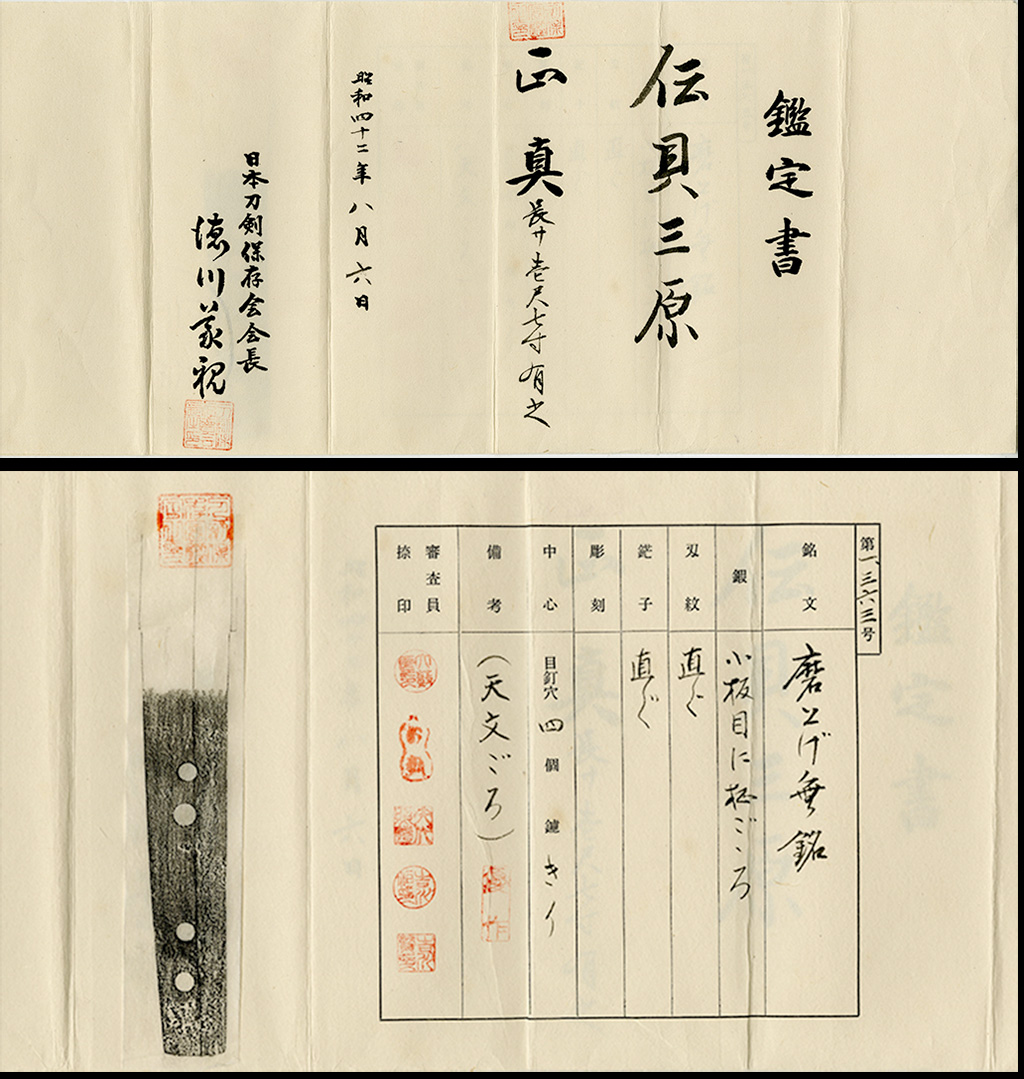 鑑定書
伝貝三原
正真
長サ壱尺七寸有之
昭和四十二年八月六日
日本刀剣保存会会長
徳川義親
第一、三六三号
銘文
磨上げ無銘
鍛
小板目に柾ごころ
刃紋
直ぐ
鋩子
直ぐ
彫刻
中心
目釘穴 四個 鑢 きり
備考
(天文ごろ)
審査員
捺印